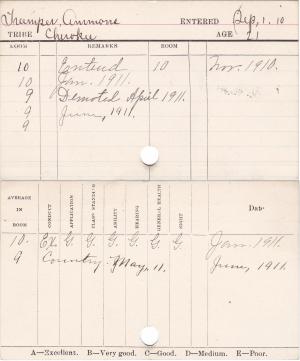 Thamper, Ammons ENTERED Sep, 1. 10
TRIBE Cheroke AGE 21
ROOM REMARKS ROOM
10 Entered 10 Nov. 1910.
10 Jan. 1911.
9 Demoted April 1911.
9 June, 1911.
9
AVERAGE IN ROOM CONDUCT APPLICATION CLASS STANDING ABILITY HEARING GENERAL HEALTH SIGHT DATE
10. Ex G. G. G. G. G. G. Jan. 1911.
9 Country. May, 11. June, 1911.
A—Excellent. B—Very good. C—Good. D—Medium. E—Poor.